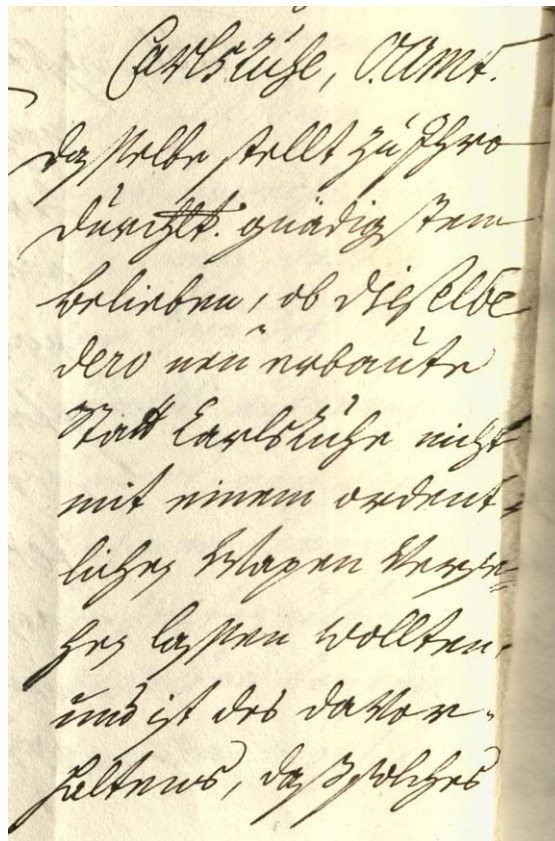 Carlsruhe, O.Amt.
dasselbe stellt zu Ihro
Durchlt. gnädigstem
belieben, ob dieselbe
dero neu erbaute
Statt Carlsruhe nicht
mit einem ordent-
lichen Wapen verse-
hen lassen wollten,
und ist des davor-
haltens, daß solches